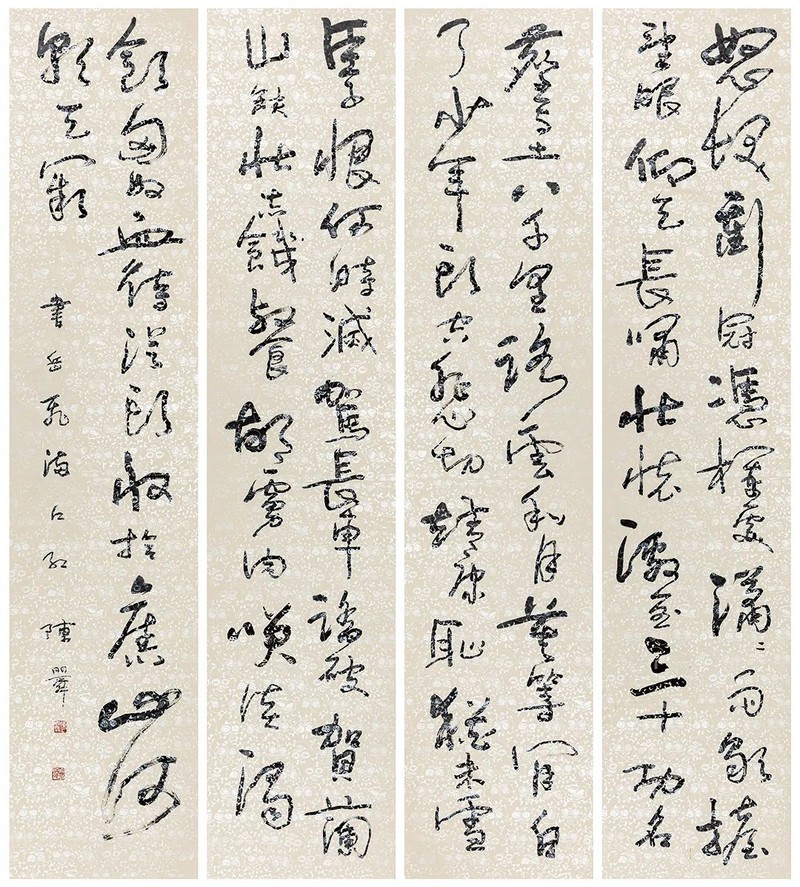 怒髮衝冠憑欄處瀟瀟雨歇擡
望眼仰天長嘯壯懷激烈三十功名
塵與土八千里路雲和月莫等閒白
了少年頭空悲切靖康恥猶未雪
臣子恨何時滅駕長車踏破賀蘭
山缺壯志饑餐胡虜肉笑談渴
飲匈奴血待從頭收拾舊山河
朝天闕
書岳飛滿江紅 陳